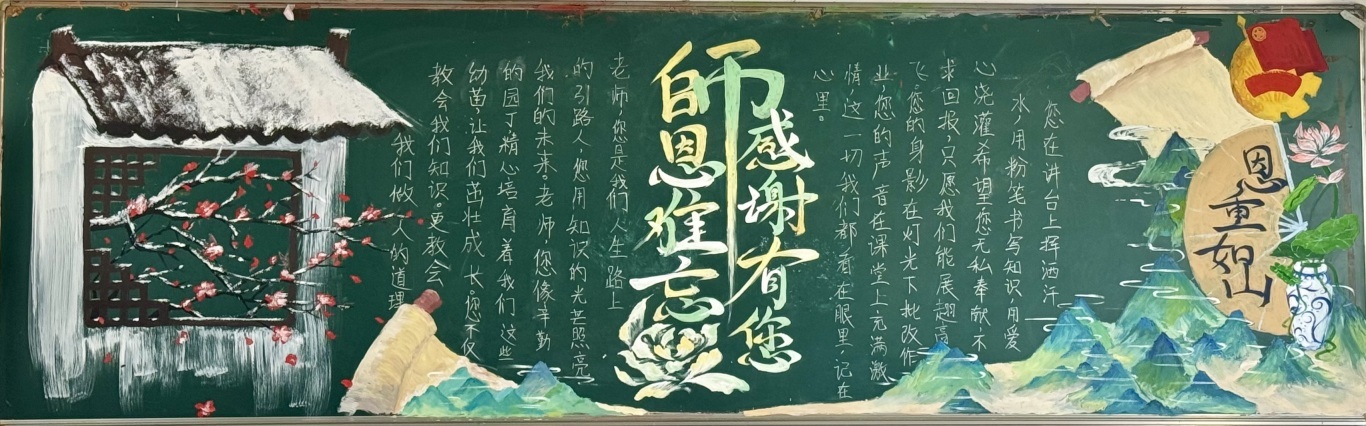 恩重如山
您在讲台上挥洒汗
水,用粉笔书写知识,用爱
心浇灌希望您无私奉献不
求回报,只愿我们能展翅高
飞,您的身影在灯光下批改作
业,您的声音在课堂上充满激
情,这一切我们都看在眼里,记在
心里。
師恩难忘
感谢有您
老师,您是我们人生路上
的引路人,您用知识的光芒照亮
我们的未来老师,您像辛勤
的园丁精心培育着我们这些
幼苗,让我们茁壮成长。您不仅
教会我们知识。更教会
我们做人的道理